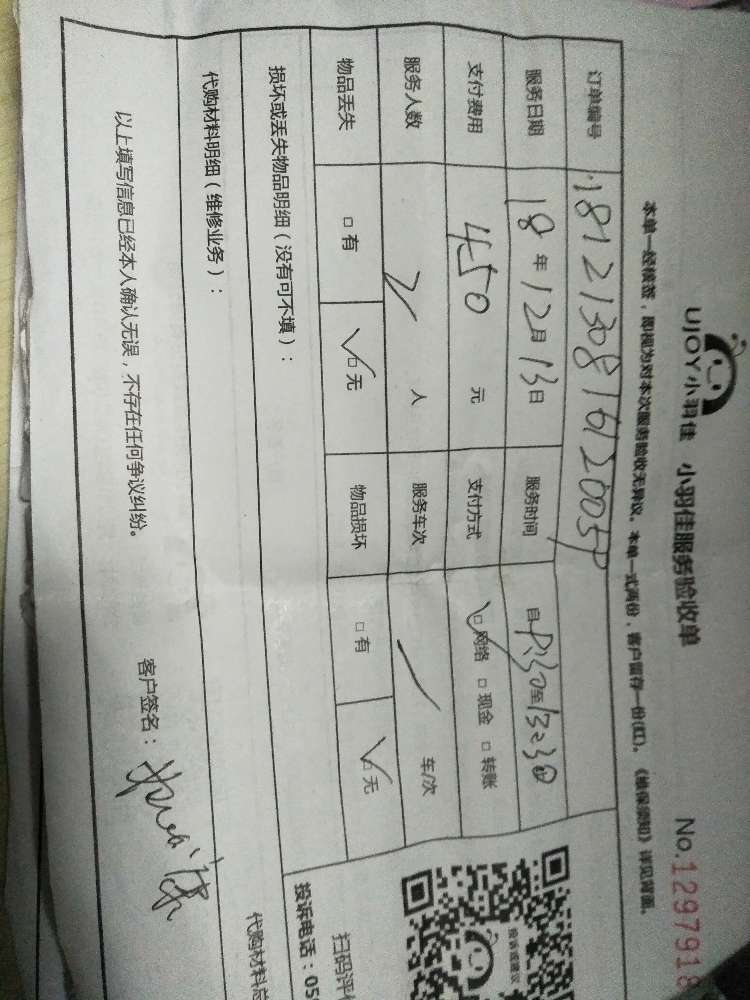 UJOY小羽佳 小羽佳服务验收单 No.1297918
本单一经核签，即视为对本次服务验收无异议。本单一式两份，客户留存一份(红)。《维保须知》详见背面。
订单编号
服务日期 18年12月13日 服务时间 自 至13:30
支付费用 450 元 支付方式 ☑网络 □现金 □转账
服务人数 2 人 服务车次 车/次
物品丢失 □有 ☑无 物品损坏 □有 ☑无
损坏或丢失物品明细（没有可不填）：
代购材料明细（维修业务）： 代购材料总
以上填写信息已经本人确认无误，不存在任何争议纠纷。 客户签名：
投诉或建议
扫码评价
投诉电话：059